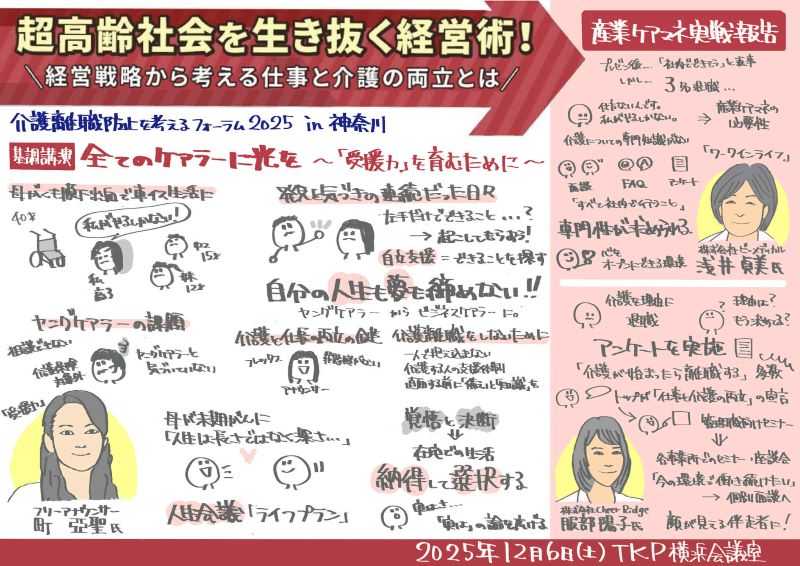 超高齢社会を生き抜く経営術!
\経営戦略から考える仕事と介護の両立とは/
介護離職防止を考えるフォーラム2025 in 神奈川
基調講演 全てのケアラーに光を ～「受援力」を育むために～
母がくも膜下出血で車イス生活に
40才
私がやるしかない!
私
高3
弟
15才
妹
12才
発見と気づきの連続だった日々
左手だけでできること…?
→ 起こしてもらおう!
自立支援 = できることを探す
自分の人生も夢も諦めない!!
ヤングケアラーの課題
相談できない
介護保険
対象外
ヤングケアラーと
気づいていない
「受援力」
ヤングケアラー から ビジネスケアラーに
介護と仕事の両立の鍵
フレックス
アナウンサー
介護離職をしないために
一人で抱え込まない
直面する前に備えと「知識」を
母が末期がんに
「人生は長さではなく深さ…」
人生会議「ライフプラン」
覚悟と決断
在宅での生活
納得して選択する
「実は」の輪を広げる
フリーアナウンサー
町 亞聖氏
産業ケアマネ実戦報告
プレゼン後…「社内でできそう」と返事
しかし…
3名退職…
仕方ないんです。
私がやるしかない。
→ 産業ケアマネの
必要性
介護についての専門知識がない
面談
FAQ
アンケート
「すべて社内でやってること」
専門性が求められる
心を
オープンにできる環境
「ワークインライフ」
株式会社ビーメディカル
浅井 貞美氏
介護を理由に
退職
理由は?
もう決めてる?
アンケートを実施
「介護が始まったら離職する」多数
トップが「仕事と介護の両立」の宣言
管理職向けセミナー
各事業所でのセミナー・座談会
「今の環境で働き続けたい」
→ 個別面談へ
顔が見える伴走者に!
株式会社Cheer Ridge
服部 陽子氏
2025年12月6日(土) TKP横浜会議室